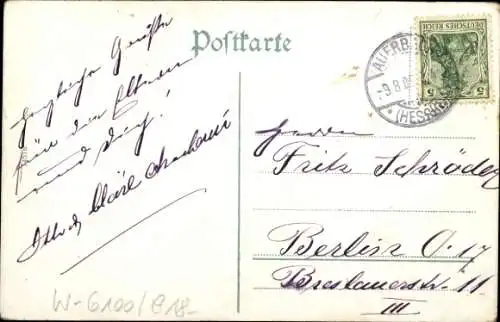 Postkarte
DEUTSCHES REICH
5 5
AUERB
-9.8.0
(HESS
Herzliche Grüße
für die Eltern
und Dich!
Kläre
Herrn
Fritz Schröder
Berlin O. 17
Breslauerstr. 11
III
W-6100/E18-